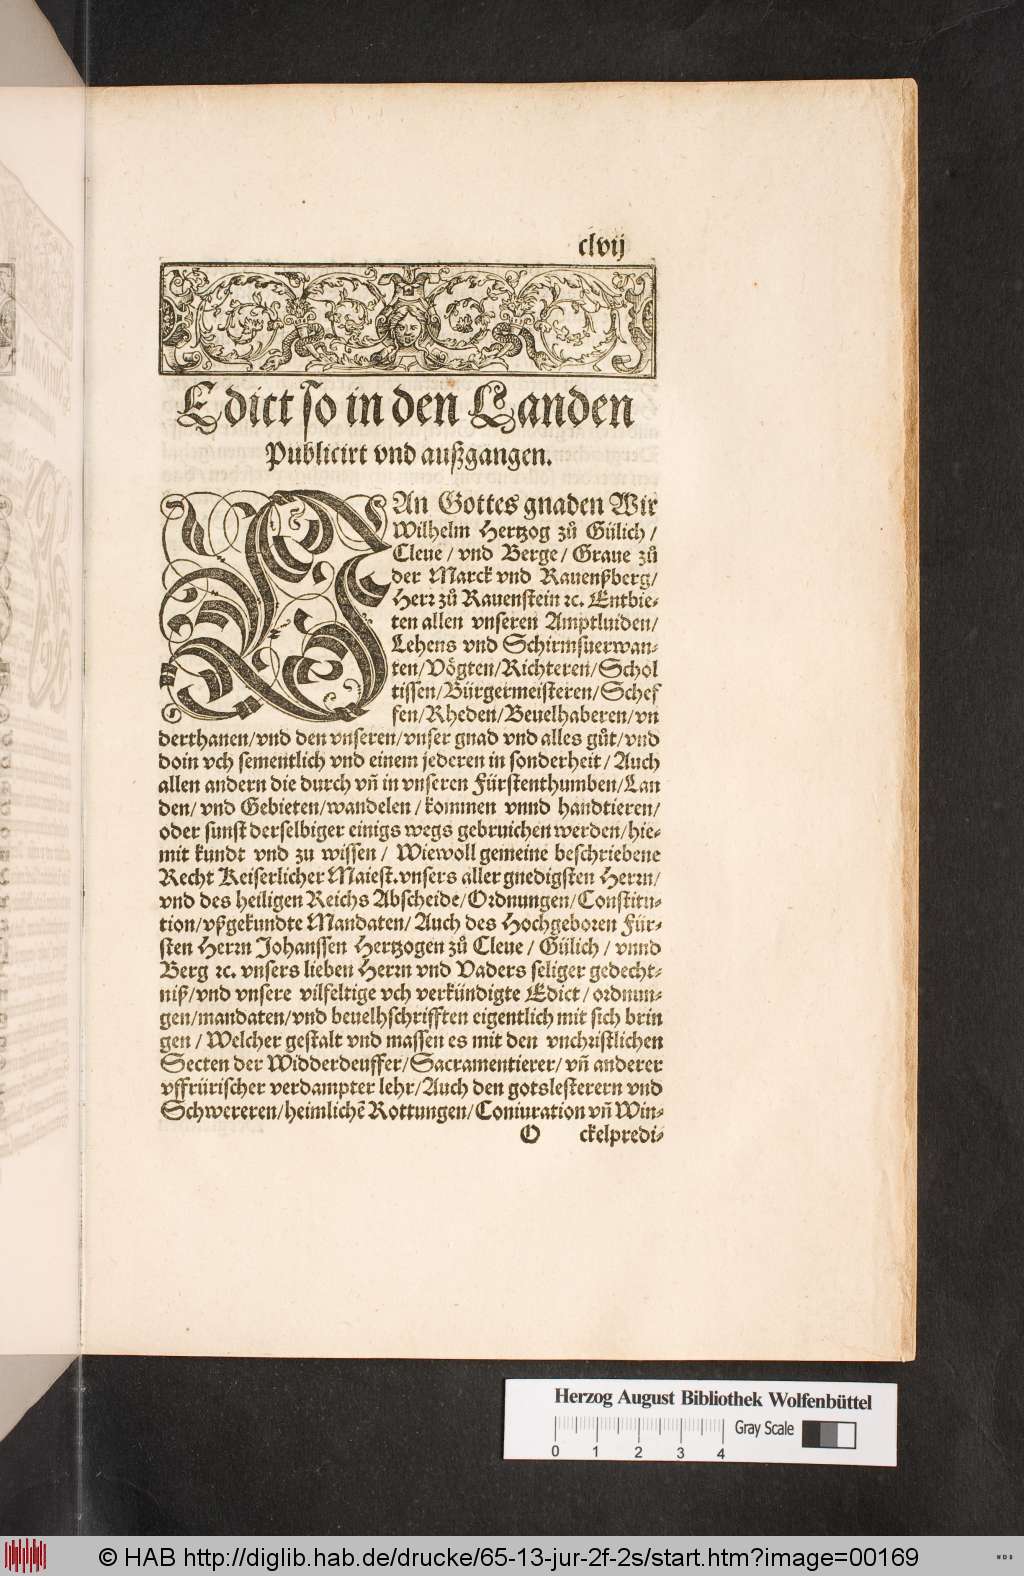 clvij
Edict so in den Landen
Publicirt vnd außgangen.
VAn Gottes gnaden Wir
Wilhelm Hertzog zů Gülich /
Cleue / vnd Berge / Graue zů
der Marck vnd Rauenßberg /
Herr zů Rauenstein ꝛc. Entbie⸗
ten allen vnseren Amptluiden /
Lehens vnd Schirmsuerwan⸗
ten / Vögten / Richteren / Schol
tissen / Bürgermeisteren / Schef
fen / Rheden / Beuelhaberen / vn
derthanen / vnd den vnseren / vnser gnad vnd alles gůt / vnd
doin vch sementlich vnd einem jederen in sonderheit / Auch
allen andern die durch vñ in vnseren Fürstenthumben / Lan
den / vnd Gebieten / wandelen / kommen vnnd handtieren /
oder sunst derselbiger einigs wegs gebruichen werden / hie⸗
mit kundt vnd zu wissen / Wiewoll gemeine beschriebene
Recht Keiserlicher Maiest. vnsers aller gnedigsten Herrn /
vnd des heiligen Reichs Abscheide / Ordnungen / Constitu⸗
tion / vßgekundte Mandaten / Auch des Hochgeboren Für⸗
sten Herrn Johanssen Hertzogen zů Cleue / Gülich / vnnd
Berg ꝛc. vnsers lieben Herrn vnd Vaders seliger gedecht⸗
niß / vnd vnsere vilfeltige vch verkündigte Edict / ordnun⸗
gen / mandaten / vnd beuelhschrifften eigentlich mit sich brin
gen / Welcher gestalt vnd massen es mit den vnchristlichen
Secten der Widderdeuffer / Sacramentierer / vñ anderer
vffrürischer verdampter lehr / Auch den gotslesterern vnd
Schwereren / heimlichẽ Rottungen / Coniuration vñ Win⸗
O ckelpredi⸗
Herzog August Bibliothek Wolfenbüttel
Gray Scale
0 1 2 3 4
© HAB http://diglib.hab.de/drucke/65-13-jur-2f-2s/start.htm?image=00169